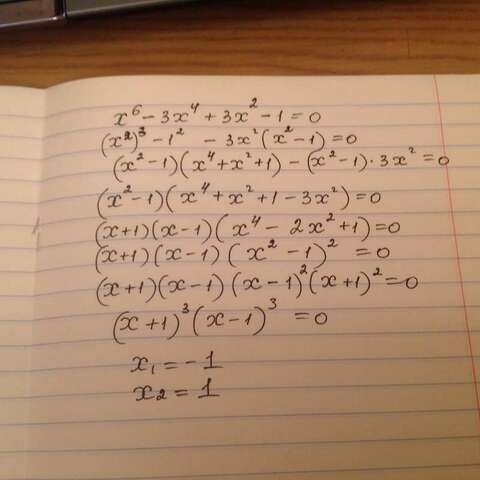 x⁶ - 3x⁴ + 3x² - 1 = 0
(x²)³ - 1² - 3x²(x² - 1) = 0
(x² - 1)(x⁴ + x² + 1) - (x² - 1) · 3x² = 0
(x² - 1)(x⁴ + x² + 1 - 3x²) = 0
(x + 1)(x - 1)(x⁴ - 2x² + 1) = 0
(x + 1)(x - 1)(x² - 1)² = 0
(x + 1)(x - 1)(x - 1)²(x + 1)² = 0
(x + 1)³(x - 1)³ = 0
x₁ = - 1
x₂ = 1